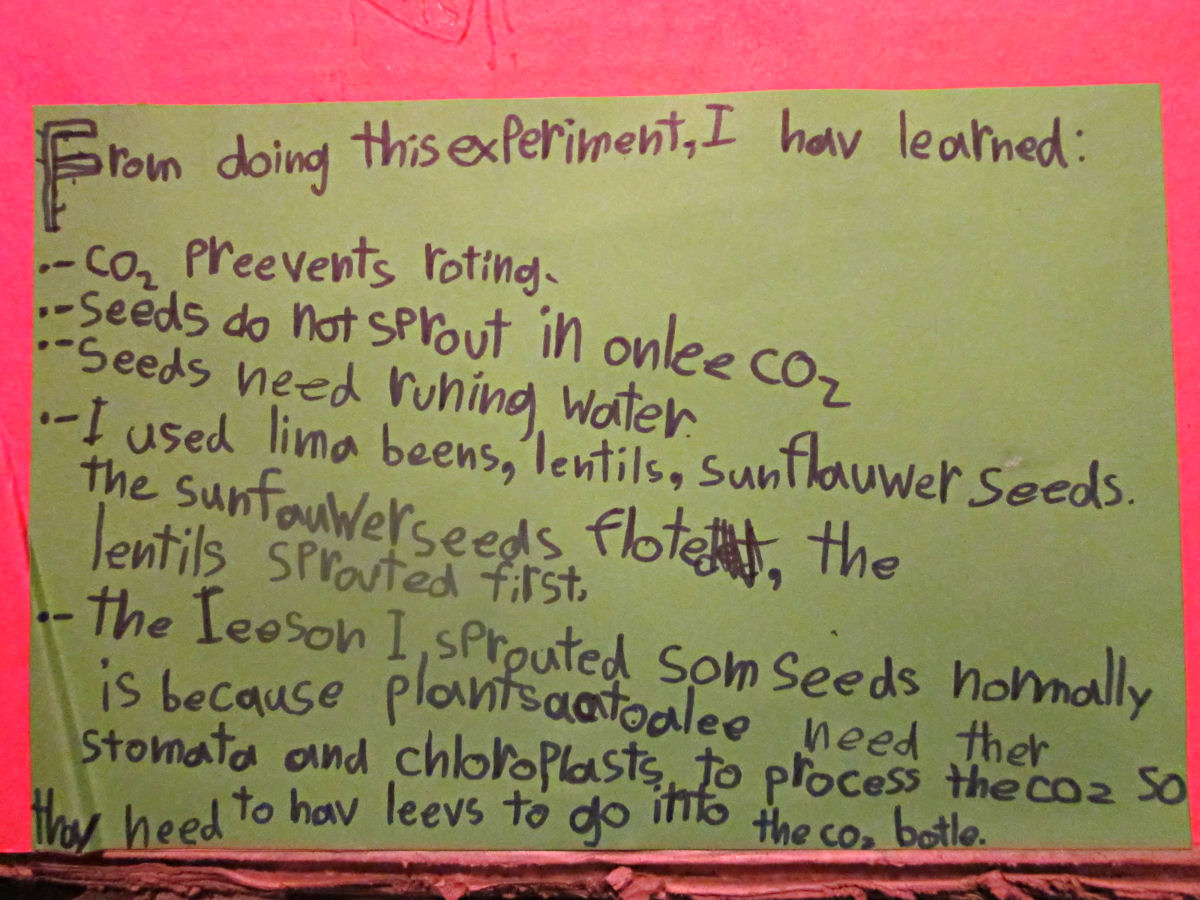 From doing this experiment, I hav learned:
·-CO₂ Preevents roting.
·-Seeds do not sprout in onlee CO₂
·-Seeds need runing water.
·-I used lima beens, lentils, sunflauwer seeds.
the sunfauwer seeds floted, the
lentils sprouted first.
·-the reeson I sprouted som seeds normally
is because plants aatoalee need ther
stomata and chloroplasts, to process the CO2 so
thay need to hav leevs to go into the CO₂ botle.